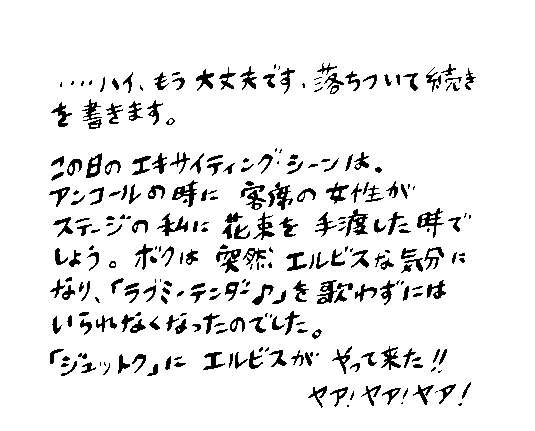 ‥‥ハイ、もう大丈夫です、落ちついて続き
を書きます。
この日のエキサイティング・シーンは、
アンコールの時に 客席の女性が
ステージの私に 花束を手渡した時で
しょう。ボクは 突然、エルビスな気分に
なり、「ラブミーテンダー♪」を歌わずには
いられなくなったのでした。
「ジェットク」に エルビスが やって来た!!
ヤア!ヤア!ヤア!